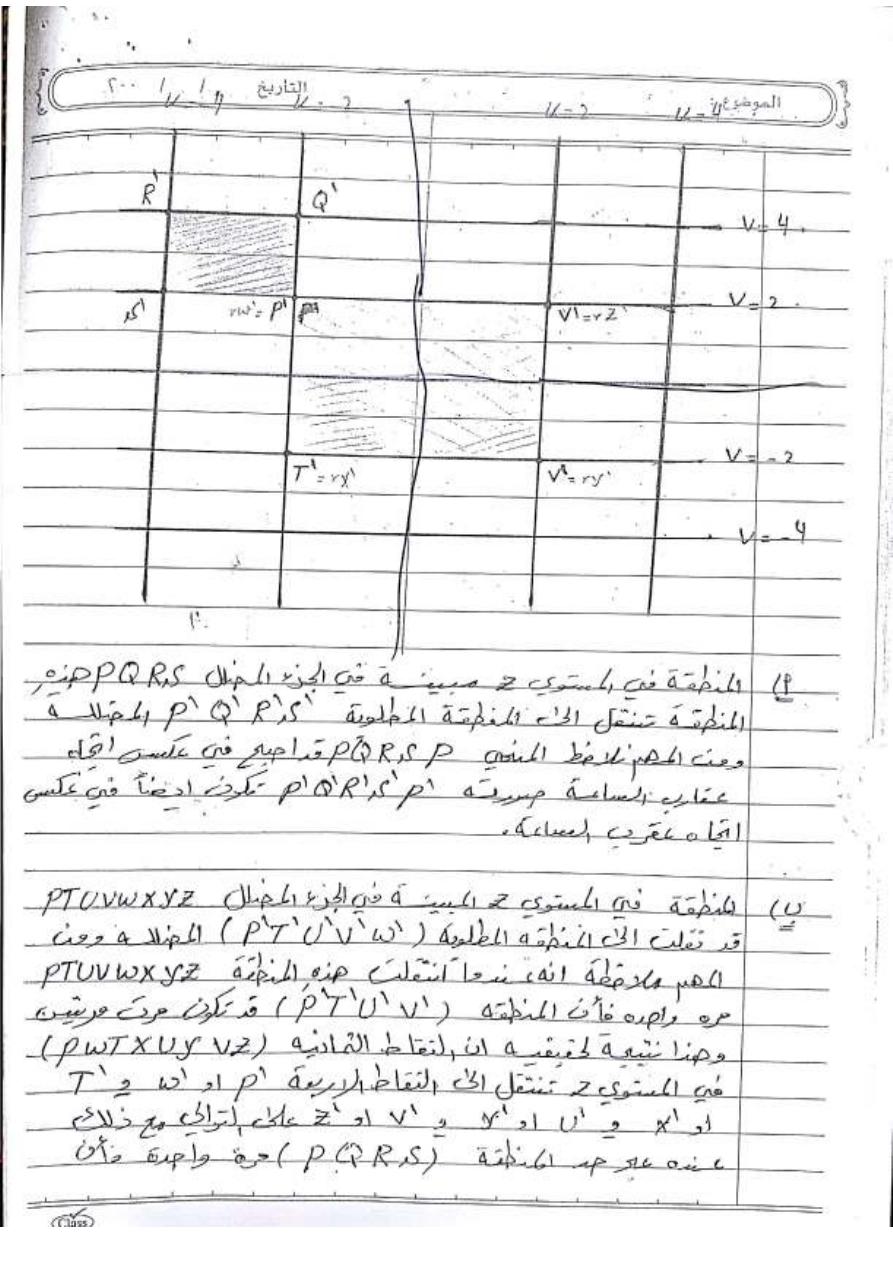 الموضوع: التاريخ / / ٢٠٠
u=-4 u=-2 u=2 u=4
R' Q'
V=4
S' W'=P' V'=Z' V=2
T'=X' U'=Y' V=-2
V=-4
أ) المنطقة في المستوي z مبينة في الجزء المظلل PQRS هذه
المنطقة تنتقل الى المنطقة المطلوبة P' Q' R' S' المظللة
ومن المهم نلاحظ المنحي PQRSP قد اصبح في عكس اتجاه
عقارب الساعة صورته P'Q'R'S'P' تكون ايضاً في عكس
اتجاه عقرب الساعة.
ب) المنطقة في المستوي z المبينة في الجزء المظلل PTUVWXYZ
قد نقلت الى المنطقه المطلوبة (P'T'U'V'W') المظللة ومن
المهم ملاحظة انه عندما انتقلت هذه المنطقة PTUVWXYZ
مره واحده فأن المنطقه (P'T'U'V') قد تكون مرت مرتين
وهذا نتيجة لحقيقيه ان النقاط الثمانيه (PWTXUYVZ)
في المستوي z تنتقل الى النقاط الاربعة P' او W' و T'
او X' و U' او Y' و V' او Z' على التوالي مع ذلك
عنده عبر حد المنطقة (PQRS) مرة واحدة فأن
Class